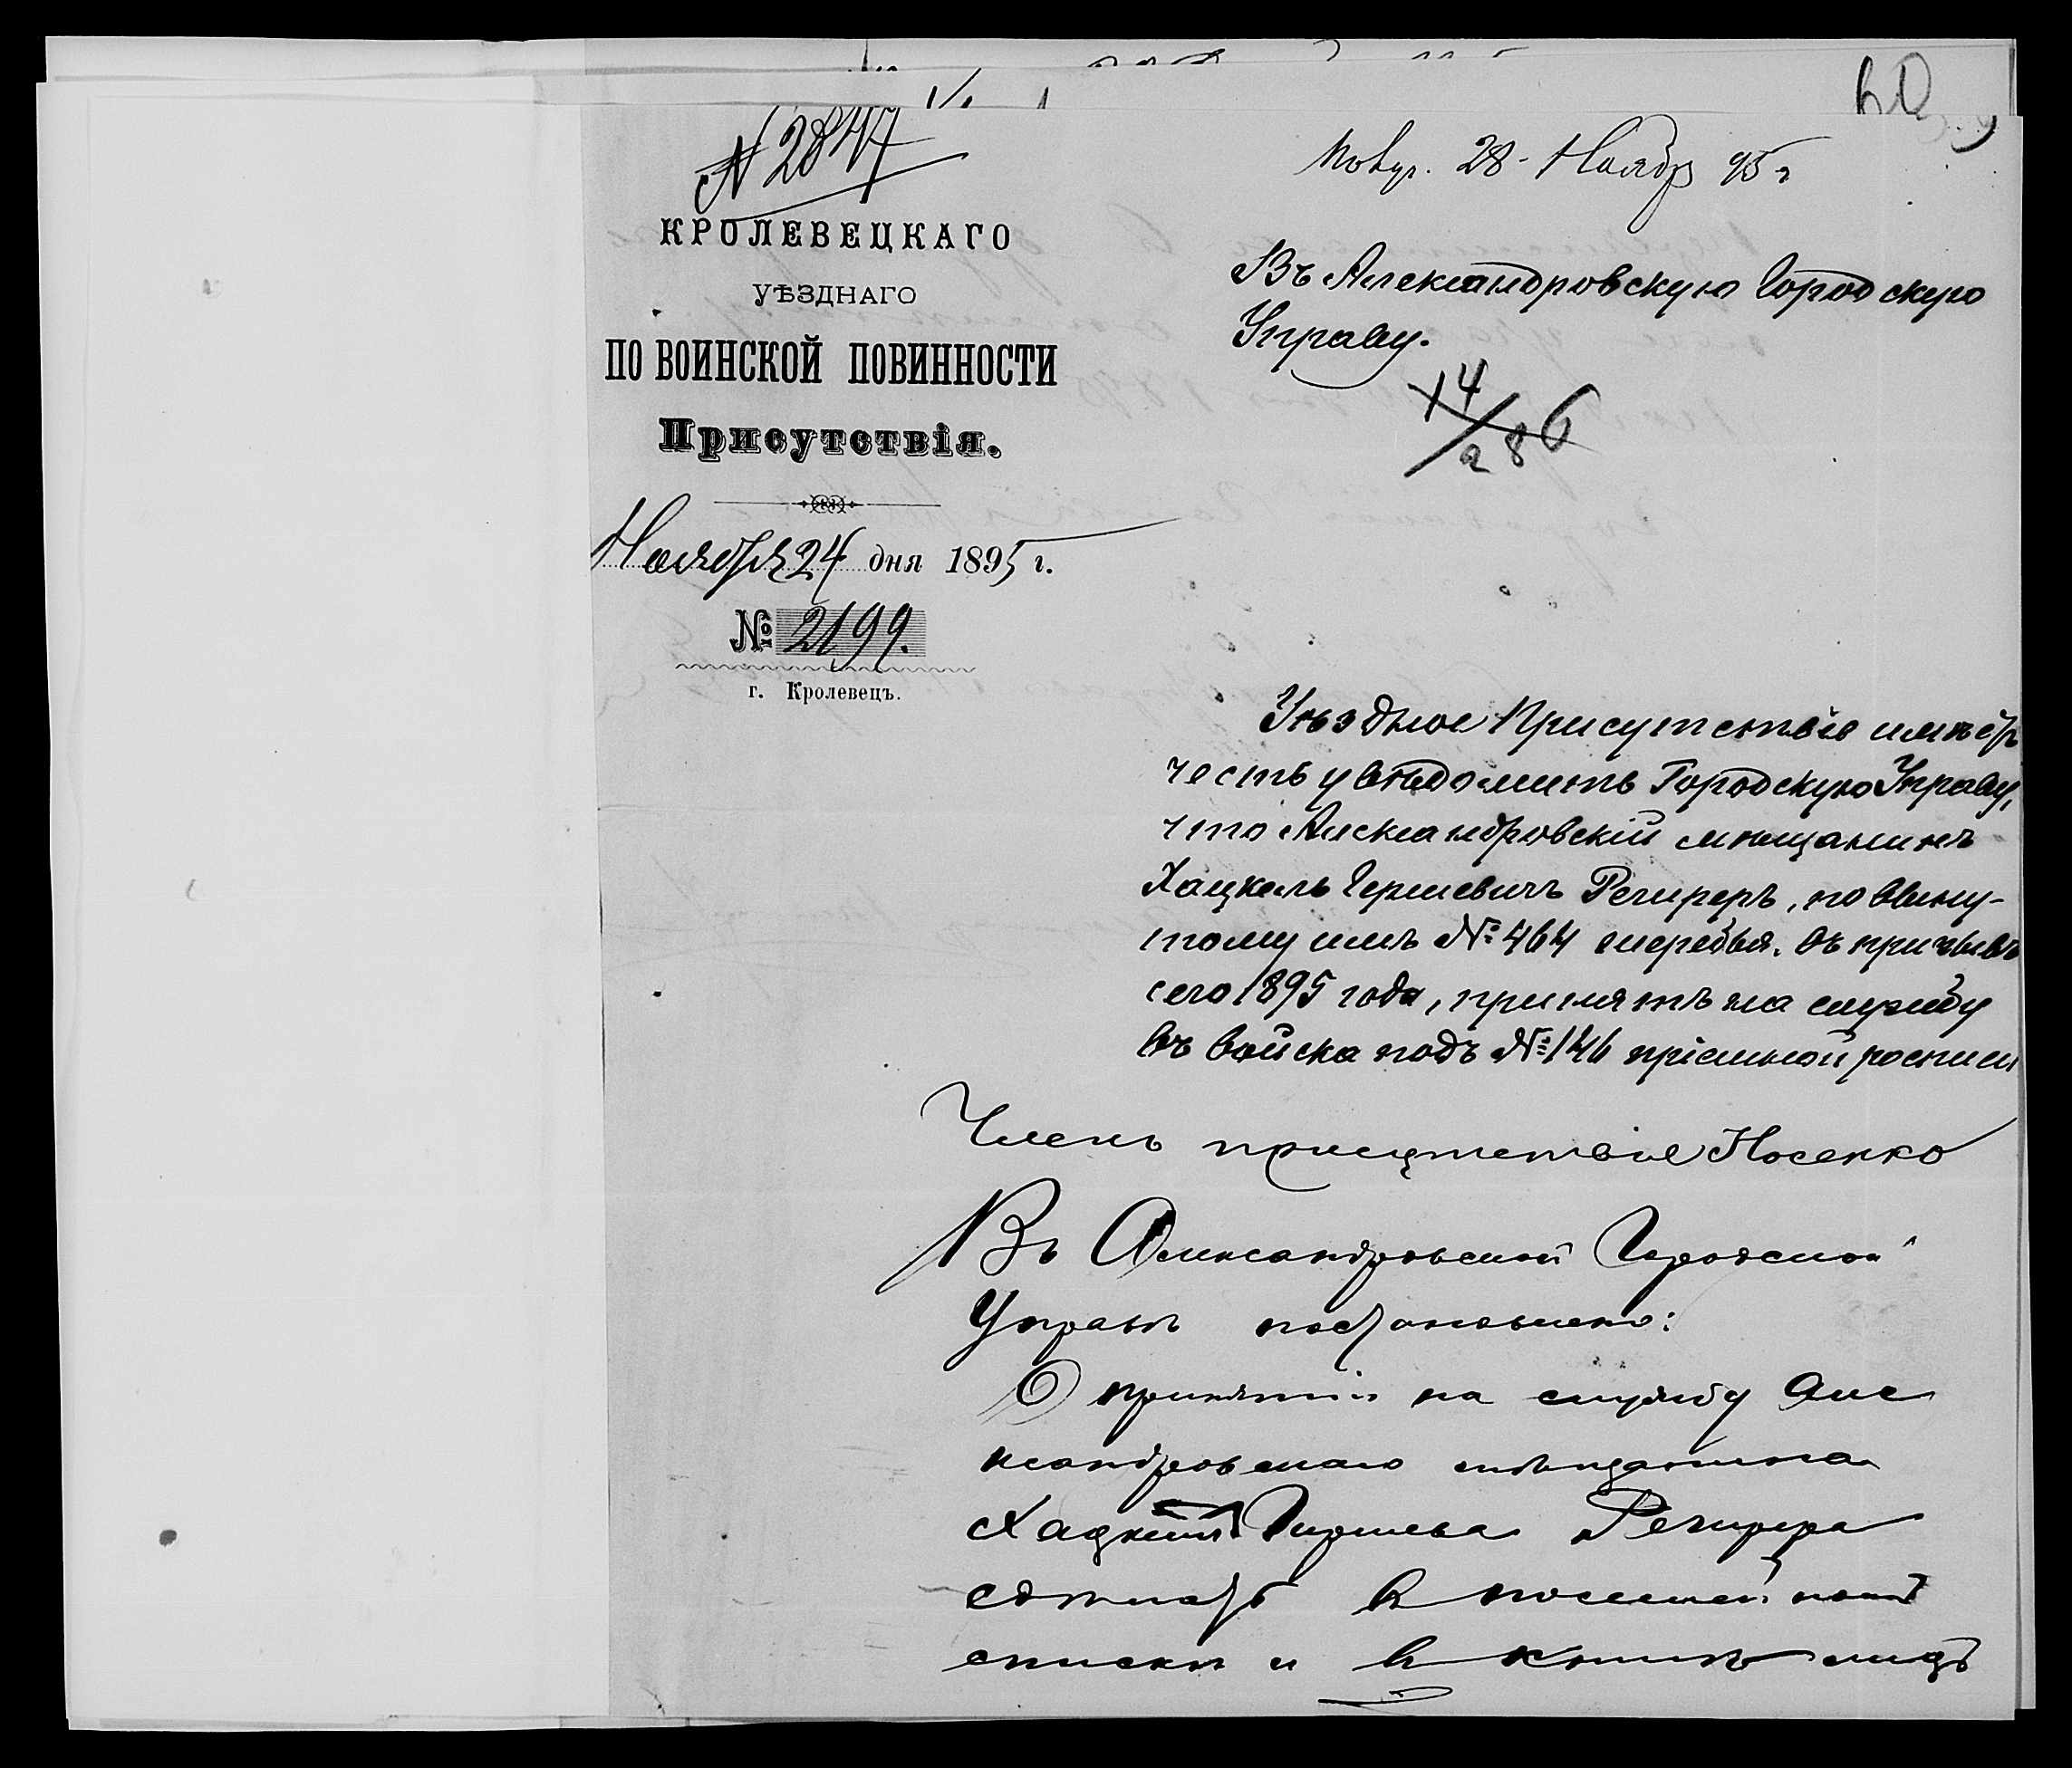 № 2847
КРОЛЕВЕЦКАГО
УѢЗДНАГО
ПО ВОИНСКОЙ ПОВИННОСТИ
Присутствія.
Ноября 24 дня 1895 г.
№ 2199.
г. Кролевецъ.
28 Ноябр 95 г
Въ Александровскую Городскую
Управу.
14/286
Уѣздное Присутствіе имѣетъ
честь увѣдомить Городскую Управу,
что Александровскій мѣщанинъ
Хацкель Гершевичъ Речиреръ, по выну-
тому имъ № 464 жеребья, въ призывѣ
сего 1895 года, принятъ на службу
въ войска подъ № 146 пріемной росписи
Членъ присутствія Носенко
Въ Александровской Городской
Управѣ постановлено:
О принятіи на службу Але
ксандровскаго мѣщанина
Хацкеля Гиршева Речирера
сдѣлать в посемей
списки и в книгѣ лицъ